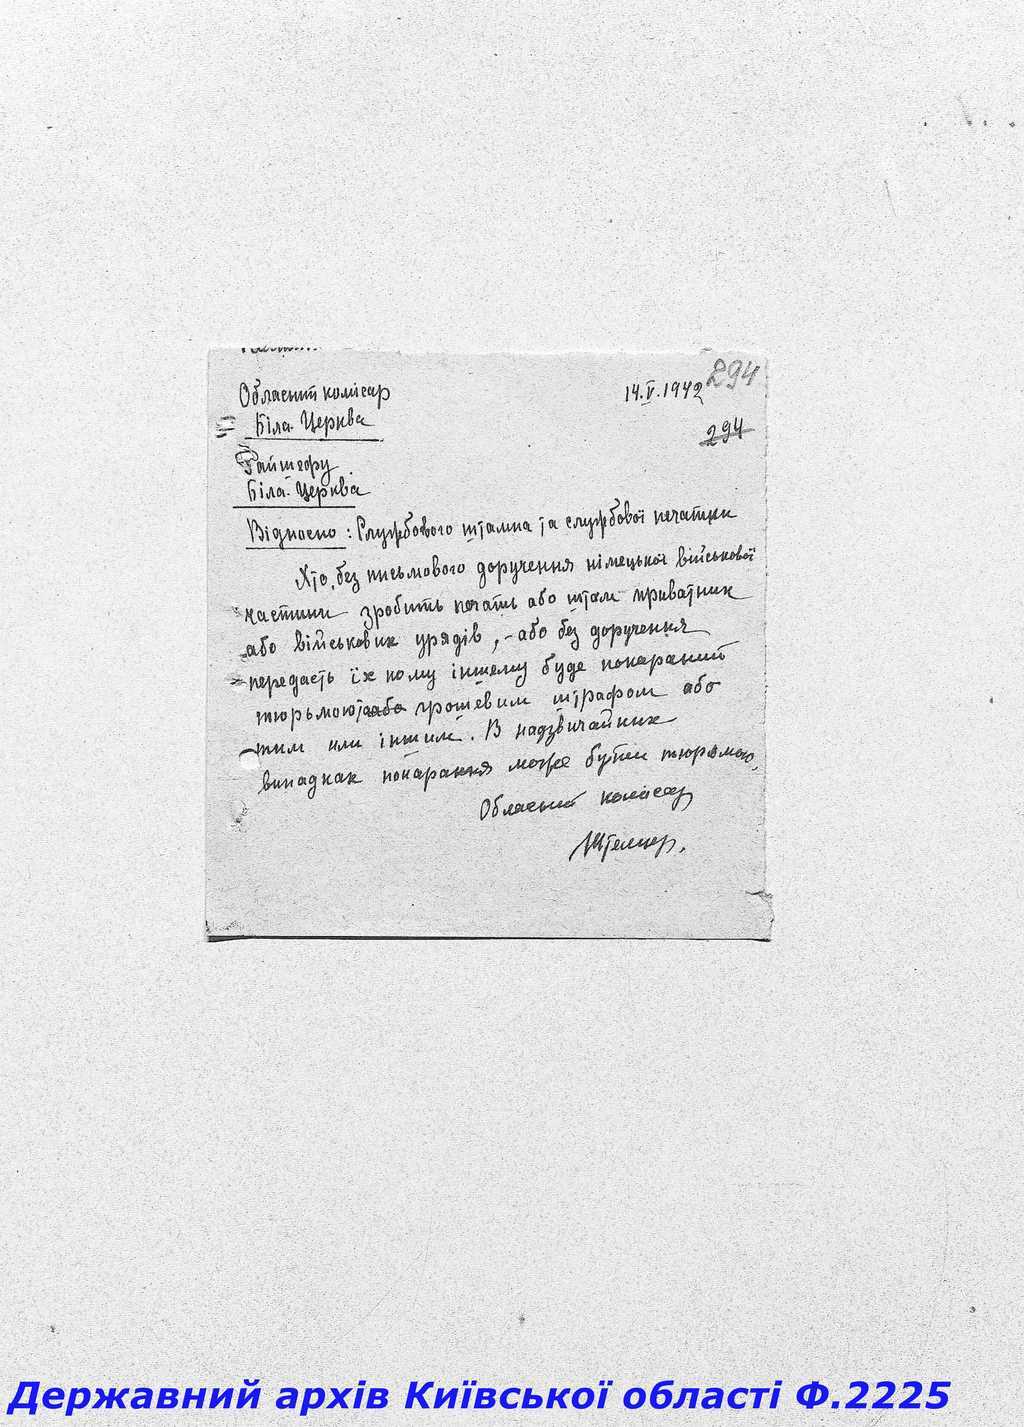 294
Обласний комісар 14.V.1942
Біла Церква
294
Райшефу
Біла-Церква
Відносно: Службового штампа та службової печатки
Хто, без письмового доручення німецької військової
частини зробить печать або штам приватник
або військових урядів, - або без доручення
передасть їх кому іншему буде покараний
тюрьмою, або грошевим штрафом або
тим или іншим. В надзвичайних
випадках покарання може бути тюрьмою.
Обласний комісар
Державний архів Київської області Ф.2225